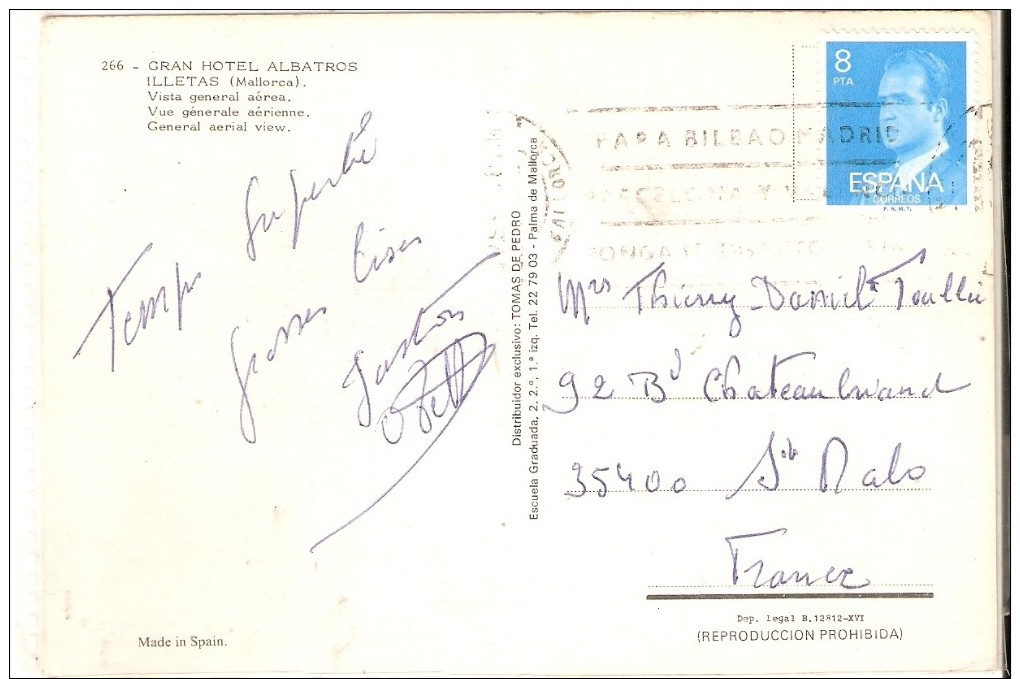 266 - GRAN HOTEL ALBATROS
ILLETAS (Mallorca).
Vista general aérea.
Vue génerale aérienne.
General aerial view.
Temps Superbe
Grosses bises
Gaston
Distribuidor exclusivo: TOMAS DE PEDRO
Escuela Graduada, 2, 2.º, 1.ª izq. Tel. 22 79 03 - Palma de Mallorca
8
PTA
ESPAÑA
CORREOS
F.N.M.T.
PARA BILBAO MADRID
PONGA
Mrs Thierry Daniel
92 Bd Chateaubriand
35400 St Malo
France
Dep. legal B.12812-XVI
(REPRODUCCION PROHIBIDA)
Made in Spain.